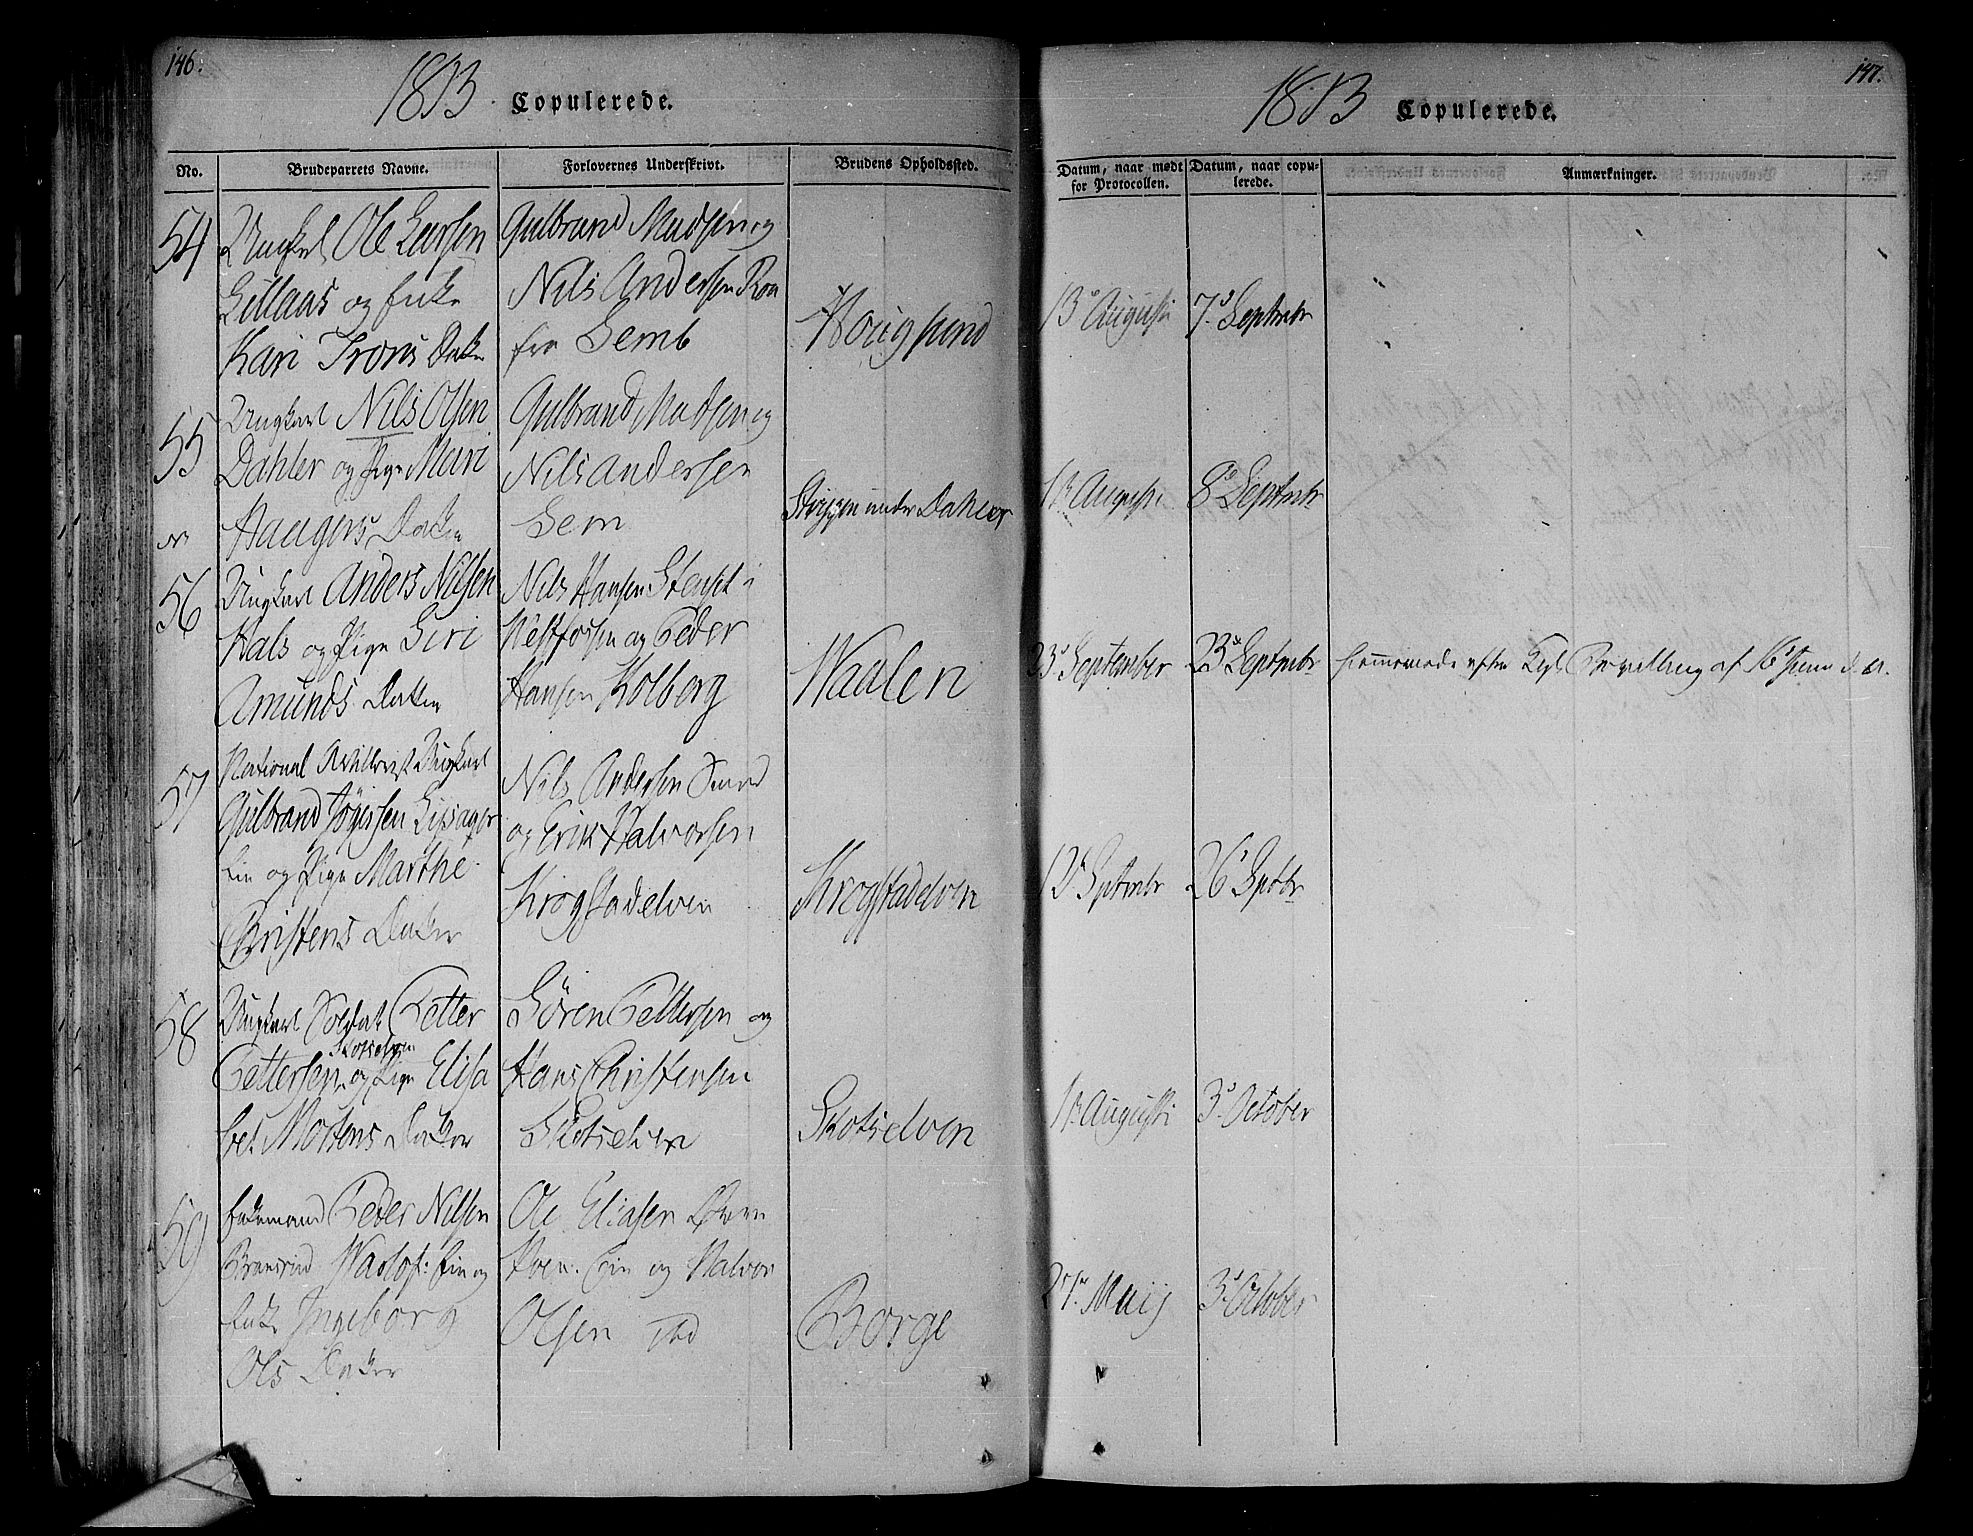 146.
1813. Copulerede.
No.
Brudeparrets Navne.
Forlovernes Underskrivt.
Brudens Opholdssted.
54
Ungkarl Ole Larsen
Lillaas og Enke
Kari Trons Datter
Gulbrand Madsen og
Nils Andersen Roa
fra Semb
Hougsund
55
Ungkarl Nils Olsen
Dahler og Pige Mari
Haagens Datter
Gulbrand Madsen og
Nils Andersen
Sem
under Dahler
56
Ungkarl Anders Nilsen
Hals og Pige Siri
Amunds Datter
Nils Hansen Stenset i
Westfossen og Peder
Hansen Kolberg
Waalen
57
National Artillerist Ungkarl
Gulbrand
Eie og Pige Marthe
Christens Datter
Nils Andersen
og Erik Halvorsen
Krogstadelven
Krogstadelven
58
Ungkarl Soldat Petter
Skotselven
Pettersen og Pige Elisa
bet Mortens Datter
Sören Pettersen og
Hans Christensen
Skotselven
Skotselven
59
Enkemand Peder Nilsen
Eie og
Enke Ingeborg
Ols Datter
Ole Eliasen
Eie og Halvor
Olsen ibd
Borge
147.
1813 Copulerede.
Datum, naar mødt
for Protocollen.
Datum, naar copu-
lerede.
Anmærkninger.
13 Augusti
7. September
Augusti
8 September
23 September
23 September
hjemmeviede efter Kgl. Bevilling af 16 Juni d. A.
12 September
26 Septbr
Augusti
3 October
27. Maij
3 October